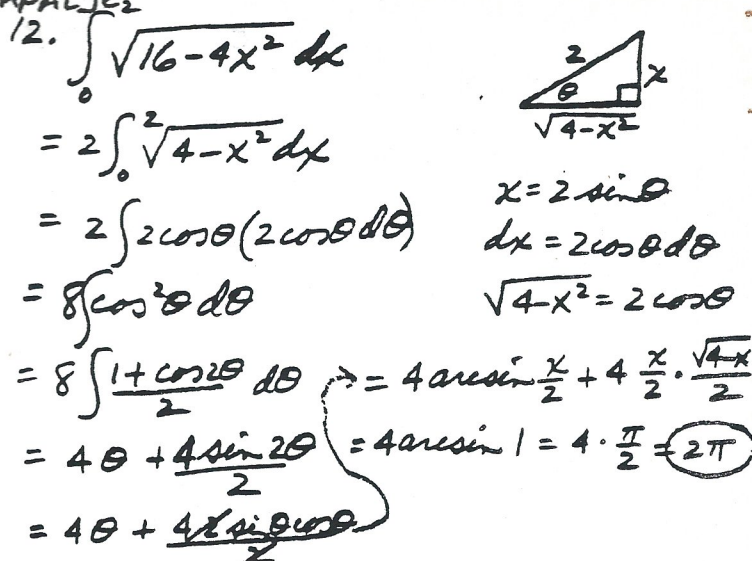 12. ∫₀² √(16-4x²) dx
= 2∫₀² √(4-x²) dx
= 2∫2cosθ(2cosθ dθ)
= 8∫cos²θ dθ
= 8∫(1+cos2θ)/2 dθ
= 4θ + 4sin2θ/2
= 4θ + 4 2 sinθcosθ/2
2
x
θ
√(4-x²)
x = 2 sinθ
dx = 2cosθ dθ
√(4-x²) = 2 cosθ
= 4 arcsin x/2 + 4 x/2 · √(4-x)/2
= 4 arcsin 1 = 4 · π/2 = 2π